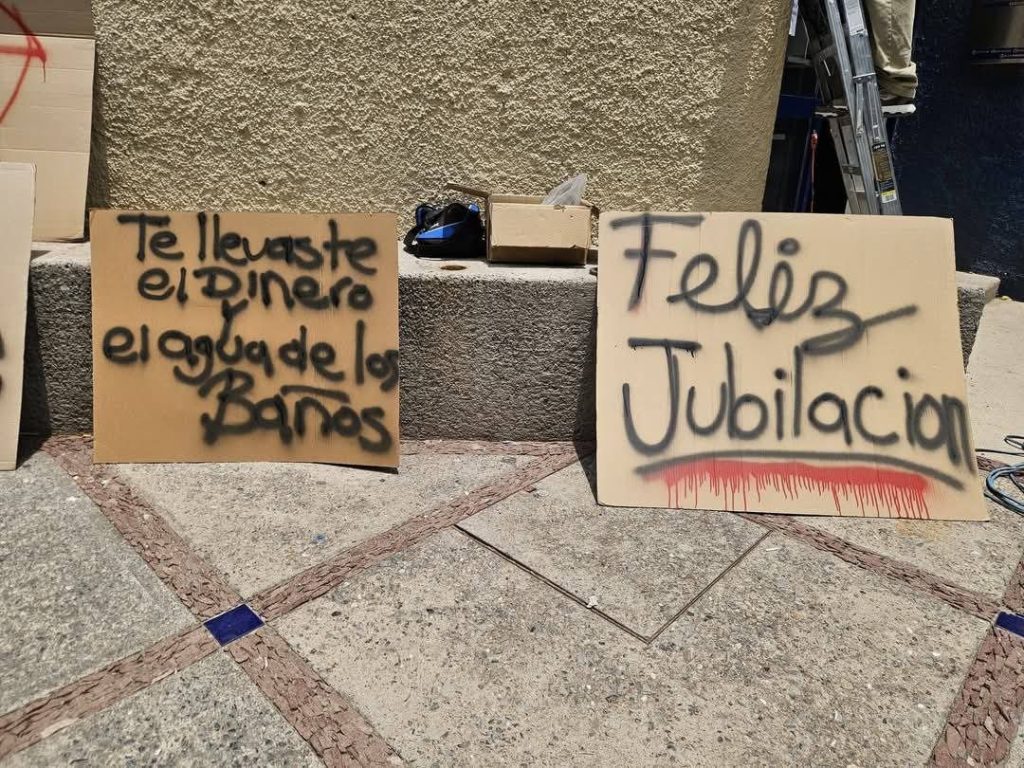 Te llevaste
el Dinero
y
el agua de los
Baños
Feliz
Jubilacion